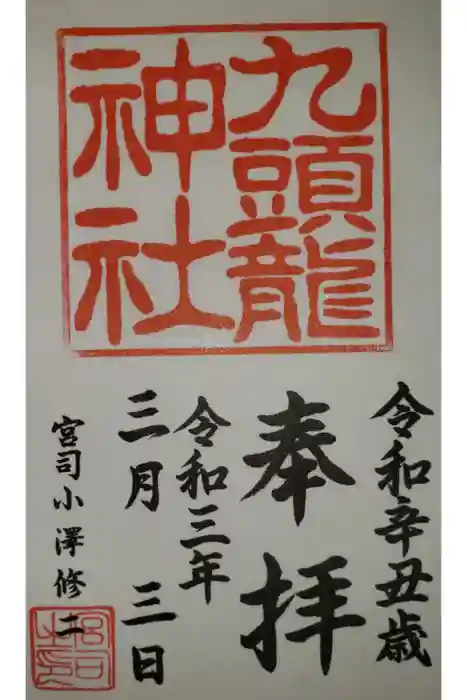 九頭龍
神社
令和辛丑歳
奉拝
令和三年
三月三日
宮司小澤修二
宮司之印